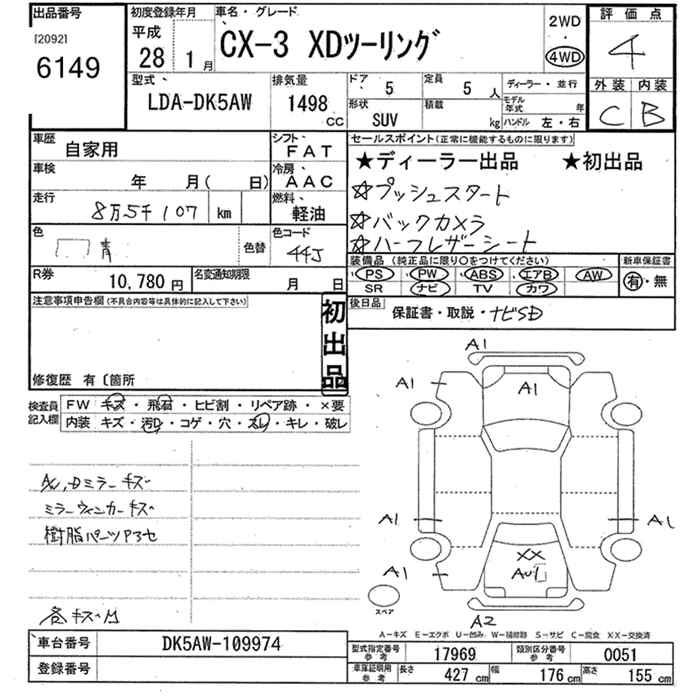 出品番号
[2092]
6149
初度登録年月
平成
28 1月
車名・グレード
CX-3 XDツーリング
2WD
・
4WD
評価点
4
外装 内装
C B
型式
LDA-DK5AW
排気量
1498 CC
ドア
5
定員
5 人
ディーラー・並行
形状
SUV
積載
kg
モデル年式 年
ハンドル 左・右
車歴
自家用
シフト
FAT
車検
年 月( 日)
冷房
AAC
走行
8万5千107 km
燃料
軽油
色
青
色替
色コード
44J
R券
10,780円
名変通知期限
月 日
セールスポイント(正常に機能するものに限ります)
★ディーラー出品 ★初出品
☆プッシュスタート
☆バックカメラ
☆ハーフレザーシート
装備品 (純正品に限り○をつけてください)
PS PW ABS エアB AW
SR ナビ TV カワ
新車保証書
有・無
後日品
保証書・取説・ナビSD
注意事項申告欄(不具合内容等は具体的に記入して下さい)
初出品
修復歴 有〔箇所
検査員記入欄
FW キズ・飛石・ヒビ割・リペア跡・×要
内装 キズ・汚れ・コゲ・穴・スレ・キレ・破レ
ミラーウィンカーキズ
樹脂パーツ
各キズ
A1
A1
A1
A1
A1
A1
A1
XX
AU1
A2
スペア
A-キズ E-エクボ U-凹み W-補修跡 S-サビ C-腐食 XX-交換済
車台番号
DK5AW-109974
登録番号
型式指定番号 参考
17969
類別区分番号 参考
0051
車庫証明用 参考
長さ 427 cm
幅 176 cm
高さ 155 cm